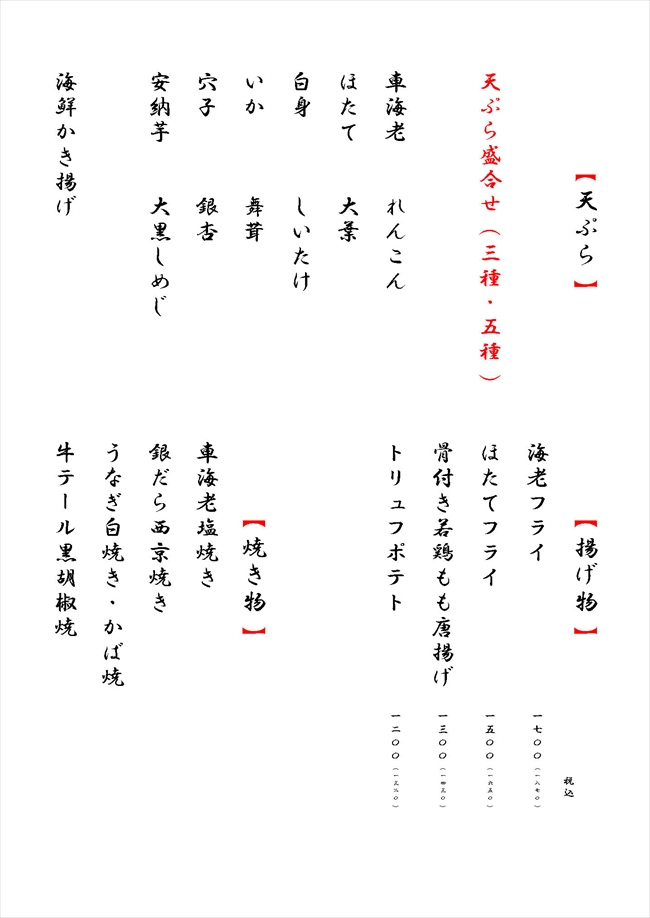 【天ぷら】
天ぷら盛合せ(三種・五種)
車海老 れんこん
ほたて 大葉
白身 しいたけ
いか 舞茸
穴子 銀杏
安納芋 大黒しめじ
海鮮かき揚げ
【揚げ物】
税込
海老フライ 一七〇〇(一八七〇)
ほたてフライ 一五〇〇(一六五〇)
骨付き若鶏もも唐揚げ 一三〇〇(一四三〇)
トリュフポテト 一二〇〇(一三二〇)
【焼き物】
車海老塩焼き
銀だら西京焼き
うなぎ白焼き・かば焼
牛テール黒胡椒焼